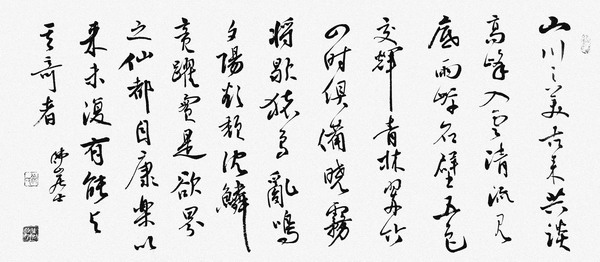 山川之美古來共談
高峰入雲清流見
底兩岸石壁五色
交輝青林翠竹
四時俱備曉霧
將歇猿鳥亂鳴
夕陽欲頹沈鱗
競躍實是欲界
之仙都自康樂以
來未復有能與
其奇者